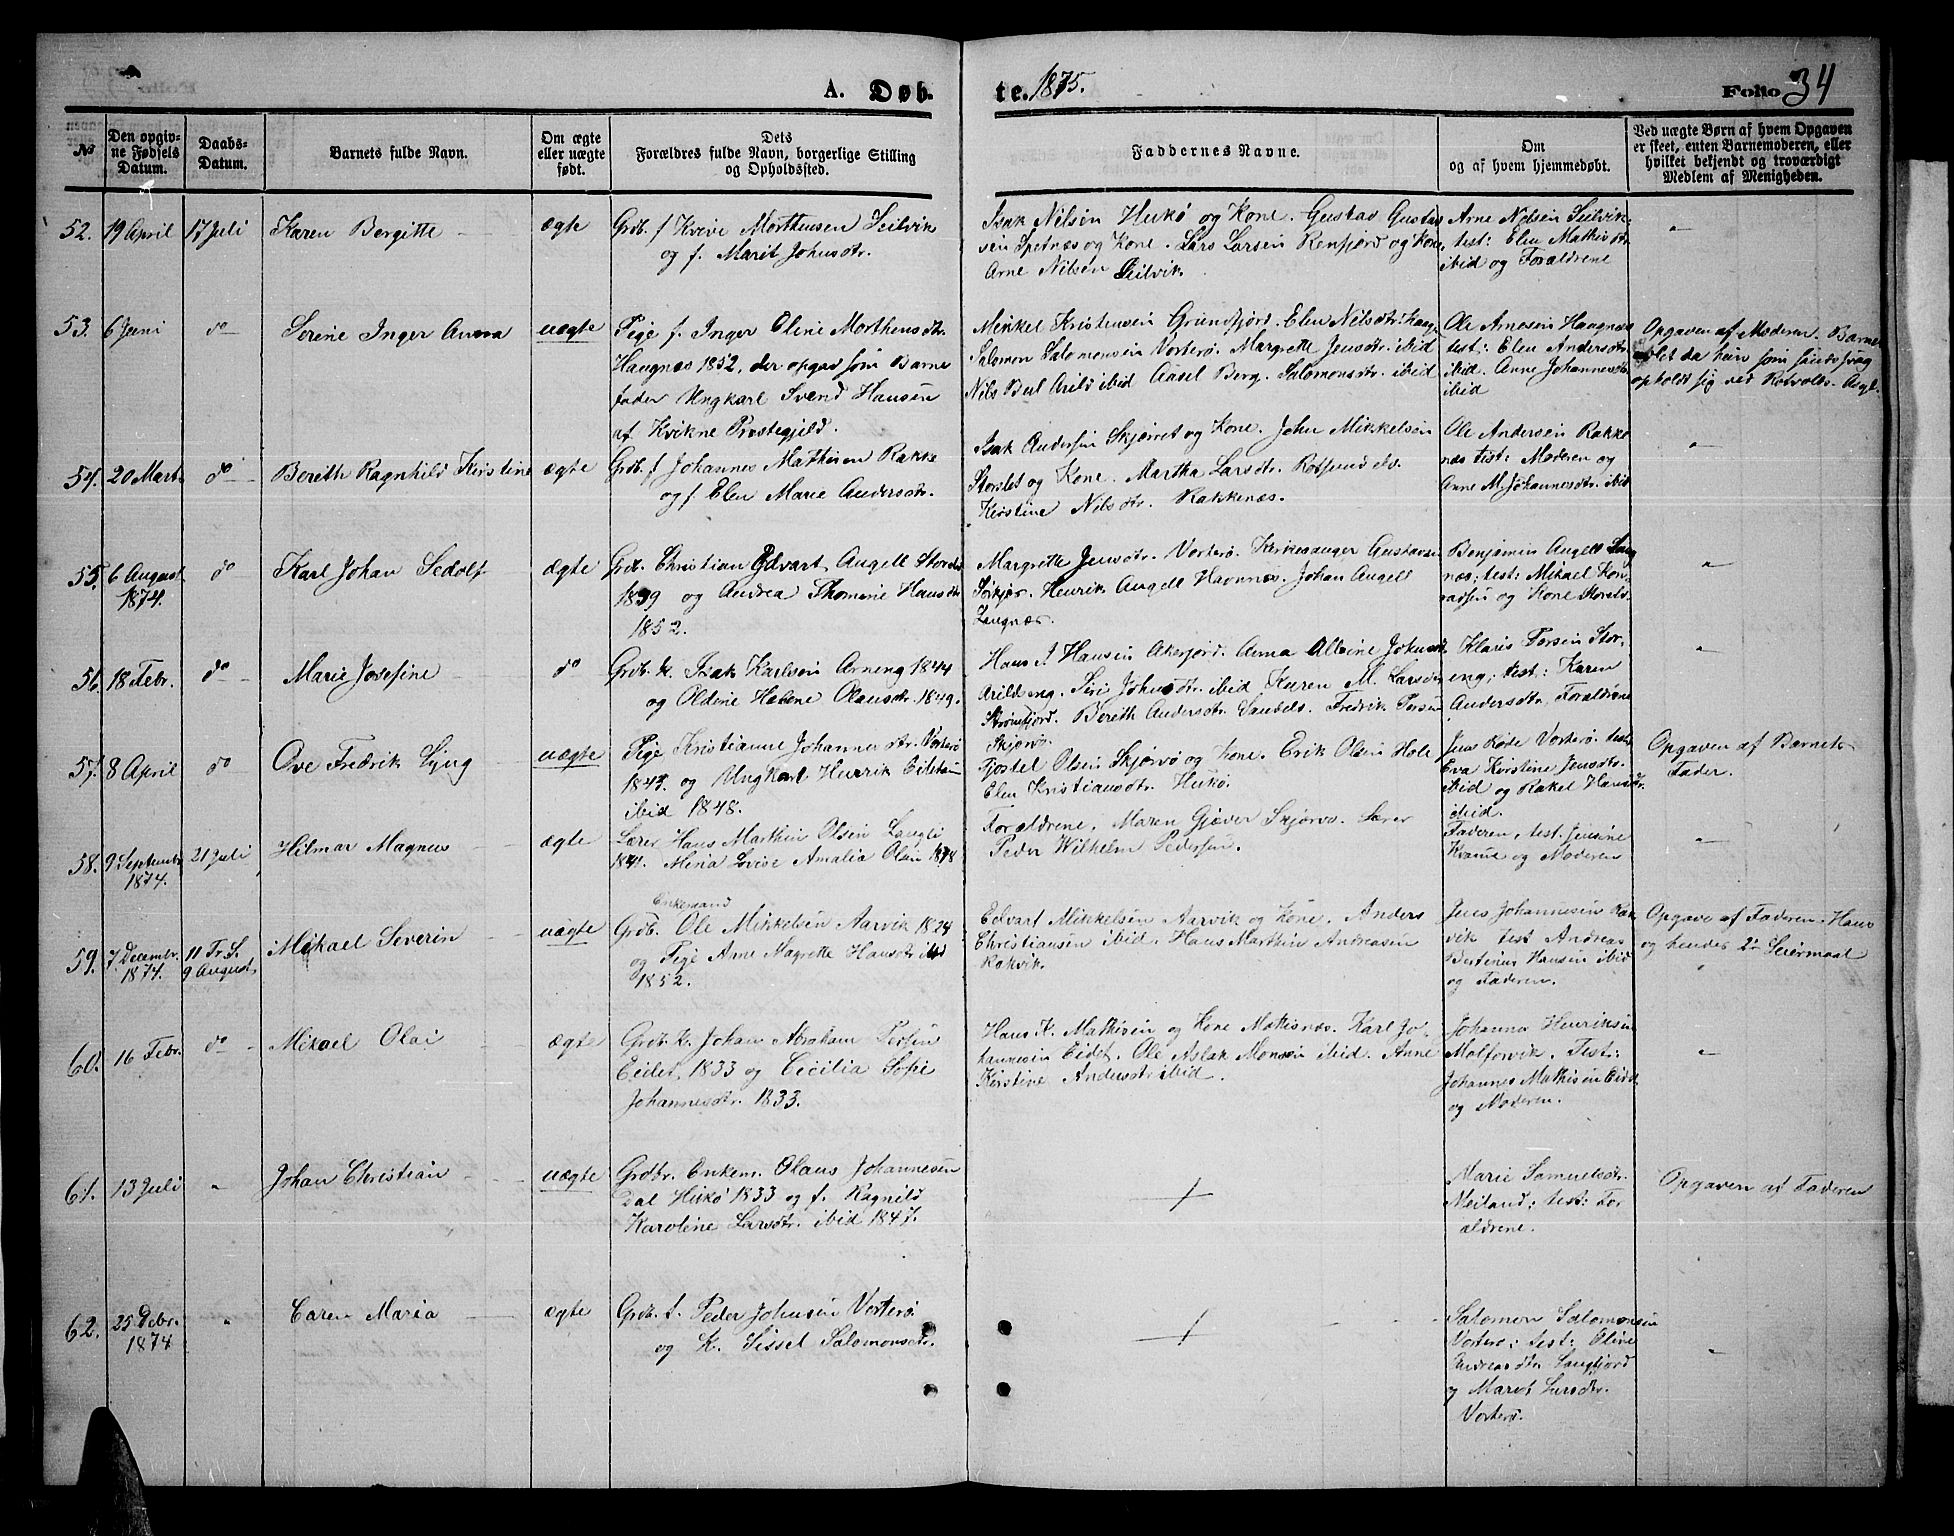 A. Døb. te. 1875. Folio 34
№
Den opgiv-
ne Fødsels
Datum.
Daabs-
Datum.
Barnets fulde Navn.
Om ægte
eller uægte
født.
Dets
Forældres fulde Navn, borgerlige Stilling
og Opholdssted.
Faddernes Navne.
Om
og af hvem hjemmedøbt.
Ved uægte Børn af hvem Opgaven
er skeet, enten Barnemoderen, eller
hvilket bekjendt og troværdigt
Medlem af Menigheden.
52. 19 April 17 Juli Karen Bergitte ægte
Grdb. f Kvive Morthensen Seilvik
og f. Marit Johnsdtr.
Isak Nilsen Hukø og Kone. Gustav Gustav
sen Spetnæs og Kone. Lars Larsen Renfjord og Kone
Arne Nilsen Seilvik.
Arne Nilsen Seilvik
test: Elen Mathisdtr.
ibid og Forældrene
"
53. 6 Juni do Serine Inger Anna uægte
Pige f. Inger Eline Morthensdtr.
Haugnæs 1852, der opgav som Barne
fader Ungkarl Svend Hansen
af Kvikne Prestegjeld.
Mikkel Kristensen Grundfjord. Elen Nilsdtr.
Salomon Salomonsen Vorterø. Margrette Jensdtr. ibid
Nils Berl Arild ibid Aasel Berg. Salomonsdtr. ibid
Ole Arnesen Haugnæs
test: Elen Andersdtr.
ibid. Anne Johannesdtr.
ibid
Opgaven af Moderen. Barne
da hun som sindssvag
opholdt sig ved Rotvolds Asyl.
54. 20 Mart do Berith Ragnhild Kristine ægte
Grdb. f Johannes Mathisen Rakke
og f. Elen Marie Andersdtr.
Isak Andersen Skjørret og Kone. John Mikkelsen
Storslet og Kone. Martha Larsdtr. Rotsundelv.
Kerstine Nilsdtr. Rakkenæs.
Ole Andersen Rakke
næs test: Moderen og
Anne M. Johannesdtr. ibid
"
55. 6 August
1874.
do Karl Johan Sedolf ægte
Grdb. Christian Edvart Angell Storslet
1839 og Andrea Thomine Hansdtr.
1852.
Margrette Jensdtr. Vorterø. Kirkesanger Gustavsen
Skjør. Henrik Angell Havnnæs. Johan Angell
Langnæs.
Benjamin Angell Lang
næs; test: Mikael Kon-
radsen og Kone Storslet
"
56. 18 Febr. do Marie Josefine do
Grdb. k. Isak Karlsen Arneng 1844
og Oldine Helene Olausdtr. 1849.
Hans A Hansen Akerfjord. Anna Albine Johnsdtr
Arildeng. Siri Johnsdtr. ibid. Karen M. Larsdtr
Strømfjord. Berith Andersdtr. Fredrik Torsen
Skjørvø.
Klaus Torsen Stor-
eng; test: Karen
Andersdtr, Forældrene
"
57. 8 April do Ove Fredrik Lyng uægte
Pige Kristianne Johannesdtr. Vorterø
1843. og Ungkarl Henrik
ibid 1848.
Tostel Olsen Skjørvø og Kone. Erik Olsen Hole
Elen Kristiansdtr. Hukø.
Jens Røde Vorterø. test:
Eva Kirstine Jensdtr.
ibid og Rakel Hansdtr.
ibid.
Opgaven af Barnets
Fader.
58. 9 Septembr
1874.
21 Juli Hilmar Magnus ægte
Lærer Hans Marthin Olsen Langli
1841. Mina Lovise Amalia Olsen 1848
Forældrene, Maren Gjæver Skjørvø. Lærer
Peder Wilhelm Pedersen.
Faderen, test. Jensine
Kvænne og Moderen
"
59. 7 Decembr.
1874.
11 Tr. S.
9 August
Mikael Severin uægte
Enkemand
Grdb. Ole Mikkelsen Aarvik 1824
og Pige Anne Magrette Hansdtr. ibid
1852.
Edvart Mikkelsen Aarvik og Kone. Anders
Christiansen ibid. Hans Marthin Andreasen
Rakvik.
Jens Johannesen Rak
vik test Andreas
Bertinus Hansen ibid
og Faderen.
Opgave af Faderen. Hans
og hendes 2de Leiermaal
60. 16 Febr. do Mikael Olai ægte
Grdb. k. Johan Abraham Persen
Eidet, 1833 og Cecilia Sofie
Johannesdtr. 1833.
Hans K. Mathisen og Kone Mækisnæs. Karl Jo-
hannesen Eidet. Ole Aslak Monsen ibid. Anne
Kirstine Andersdtr ibid.
Johannes Henriksen
Molforvik. Test:
Johannes Mathisen Eide
og Moderen.
"
61. 13 Juli " Johan Christian uægte
Grdbr. Enkem. Olaus Johannesen
Dal Hukø 1833 og f. Ragnild
Karoline Larsdtr. ibid 1847.
+
Marie Samuelsdtr.
Meiland; test: For
ældrene.
Opgaven af Faderen
62. 25 Debr.
1874
" Caren Maria ægte
Grdb. f. Peder Johnsen Vorterø
og K. Sissel Salomonsdtr.
+
Salomon Salomonsen
Vorterø; test: Oline
Andreasdtr Langfjord
og Marit Larsdtr.
Vorterø.
"